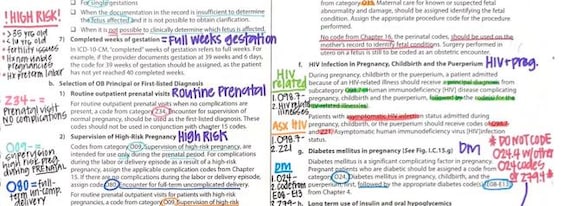 ! HIGH RISK!
- > 35 yrs old
- fertility issues
pregnancies
- Hx preterm labor
Z34 - =
Prenatal visit
NO complications
O09 - =
supervision
high risk
preg during
PRENATAL
O80 = full-
term un-comp.
delivery
for Single gestations
When the documentation in the record is insufficient to determine
the fetus affected and it is not possible to obtain clarification.
When it is not possible to clinically determine which fetus is affected.
7) Completed weeks of gestation = Full weeks gestation
In ICD-10-CM, "completed" weeks of gestation refers to full weeks. For
example, if the provider documents gestation at 39 weeks and 6 days,
the code for 39 weeks of gestation should be assigned, as the patient
has not yet reached 40 completed weeks.
b. Selection of OB Principal or First-listed Diagnosis
1) Routine outpatient prenatal visits Routine Prenatal
For routine outpatient prenatal visits when no complications are
present, a code from category Z34, Encounter for supervision of
normal pregnancy, should be used as the first-listed diagnosis. These
codes should not be used in conjunction with chapter 15 codes.
2) Supervision of High-Risk Pregnancy HIGH RISK
Codes from category O09, Supervision of high-risk pregnancy, are
intended for use only during the prenatal period. For complications
during the labor or delivery episode as a result of a high-risk
pregnancy, assign the applicable complication codes from Chapter
15. If there are no complications during the labor or delivery episode,
assign code O80, Encounter for full-term uncomplicated delivery.
For routine prenatal outpatient visits for patients with high-risk
pregnancies, a code from category O09, Supervision of high-risk
from category O35, Maternal care for known or suspected fetal
abnormality and damage, should be assigned identifying the fetal
condition. Assign the appropriate procedure code for the procedure
performed.
No code from Chapter 16, the perinatal codes, should be used on the
mother's record to identify fetal conditions. Surgery performed in
utero on a fetus is still to be coded as an obstetric encounter.
f. HIV Infection in Pregnancy, Childbirth and the Puerperium HIV + preg.
During pregnancy, childbirth or the puerperium, a patient admitted
because of an HIV-related illness should receive a principal diagnosis from
subcategory O98.7-, Human immunodeficiency [HIV] disease complicating
pregnancy, childbirth and the puerperium, followed by the code(s) for the
HIV-related illness(es).
Patients with asymptomatic HIV infection status admitted during
pregnancy, childbirth, or the puerperium should receive codes of O98.7-
and Z21, Asymptomatic human immunodeficiency virus [HIV] infection
status.
g. Diabetes mellitus in pregnancy (See Fig. I.C.15.g) DM
Diabetes mellitus is a significant complicating factor in pregnancy.
Pregnant patients who are diabetic should be assigned a code from
category O24, Diabetes mellitus in pregnancy, childbirth, and the
puerperium, first, followed by the appropriate diabetes code(s) (E08-E13)
from Chapter 4.
h. Long term use of insulin and oral hypoglycemics
HIV
related
1. O98.7-
illnesses
Asx HIV
1. O98.7-
2. Z21
DM
1. O24.-
2. code from
E08-E13
* DO NOT CODE
O24.4 w/ other
O24 codes
or Z79.4 *